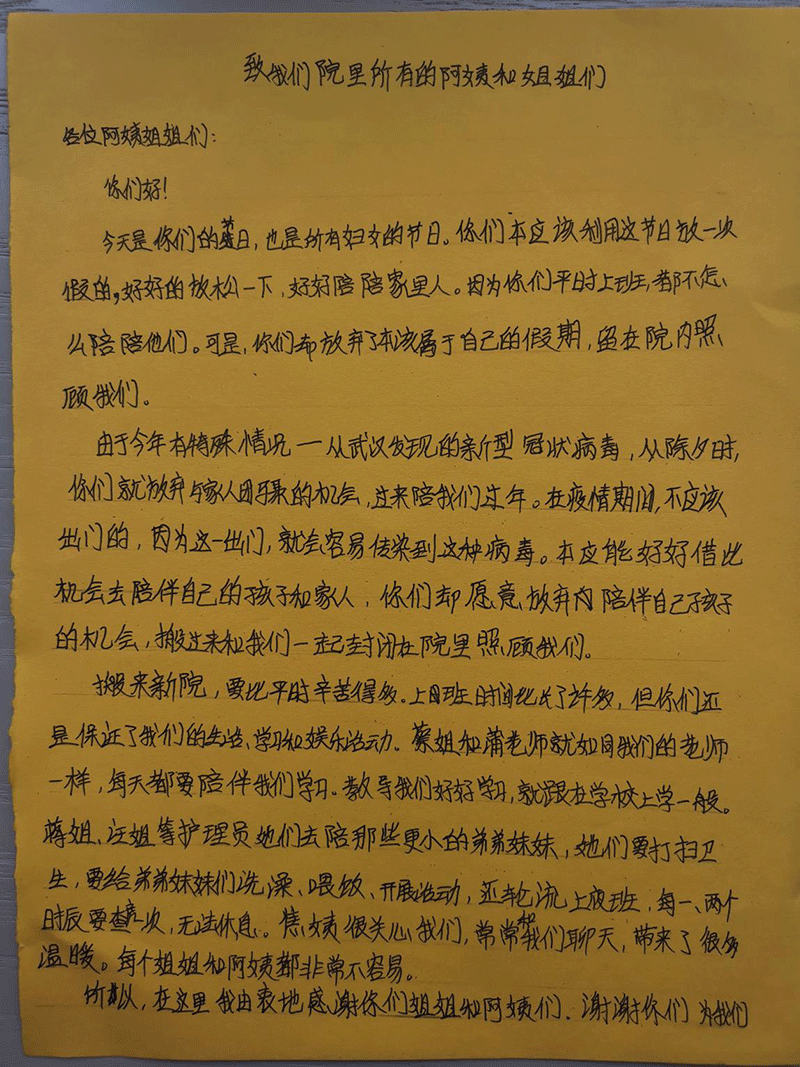 致我们院里所有的阿姨和姐姐们
各位阿姨姐姐们：
你们好！
今天是你们的节日，也是所有妇女的节日。你们本应该利用这节日放一次
假的，好好的放松一下，好好陪陪家里人。因为你们平时上班，都不怎
么陪陪他们。可是，你们却放弃了本该属于自己的假期，留在院内照
顾我们。
由于今年有特殊情况一从武汉发现的新型冠状病毒，从除夕时，
你们就放弃与家人团聚的机会，过来陪我们过年。在疫情期间，不应该
出门的，因为这一出门，就会容易传染到这种病毒。本应能好好借此
机会去陪伴自己的孩子和家人，你们却愿意放弃陪伴自己孩子
的机会，搬过来和我们一起封闭在院里照顾我们。
搬来新院，要比平时辛苦得多。上班时间比长了许多，但你们还
是保证了我们的生活、学习和娱乐活动。蔡姐和蒲老师就如同我们的老师
一样，每天都要陪伴我们学习。教导我们好好学习，就跟在学校上学一般。
蒋姐、汪姐等护理员她们去陪那些更小的弟弟妹妹，她们要打扫卫
生，要给弟弟妹妹们洗澡、喂饭、开展活动，还轮流上夜班，每一、两个
时辰要查房一次，无法休息。焦姨很关心我们，常常和我们聊天，带来了很多
温暖。每个姐姐和阿姨都非常不容易。
所以，在这里我由衷地感谢你们姐姐和阿姨们．谢谢你们为我们